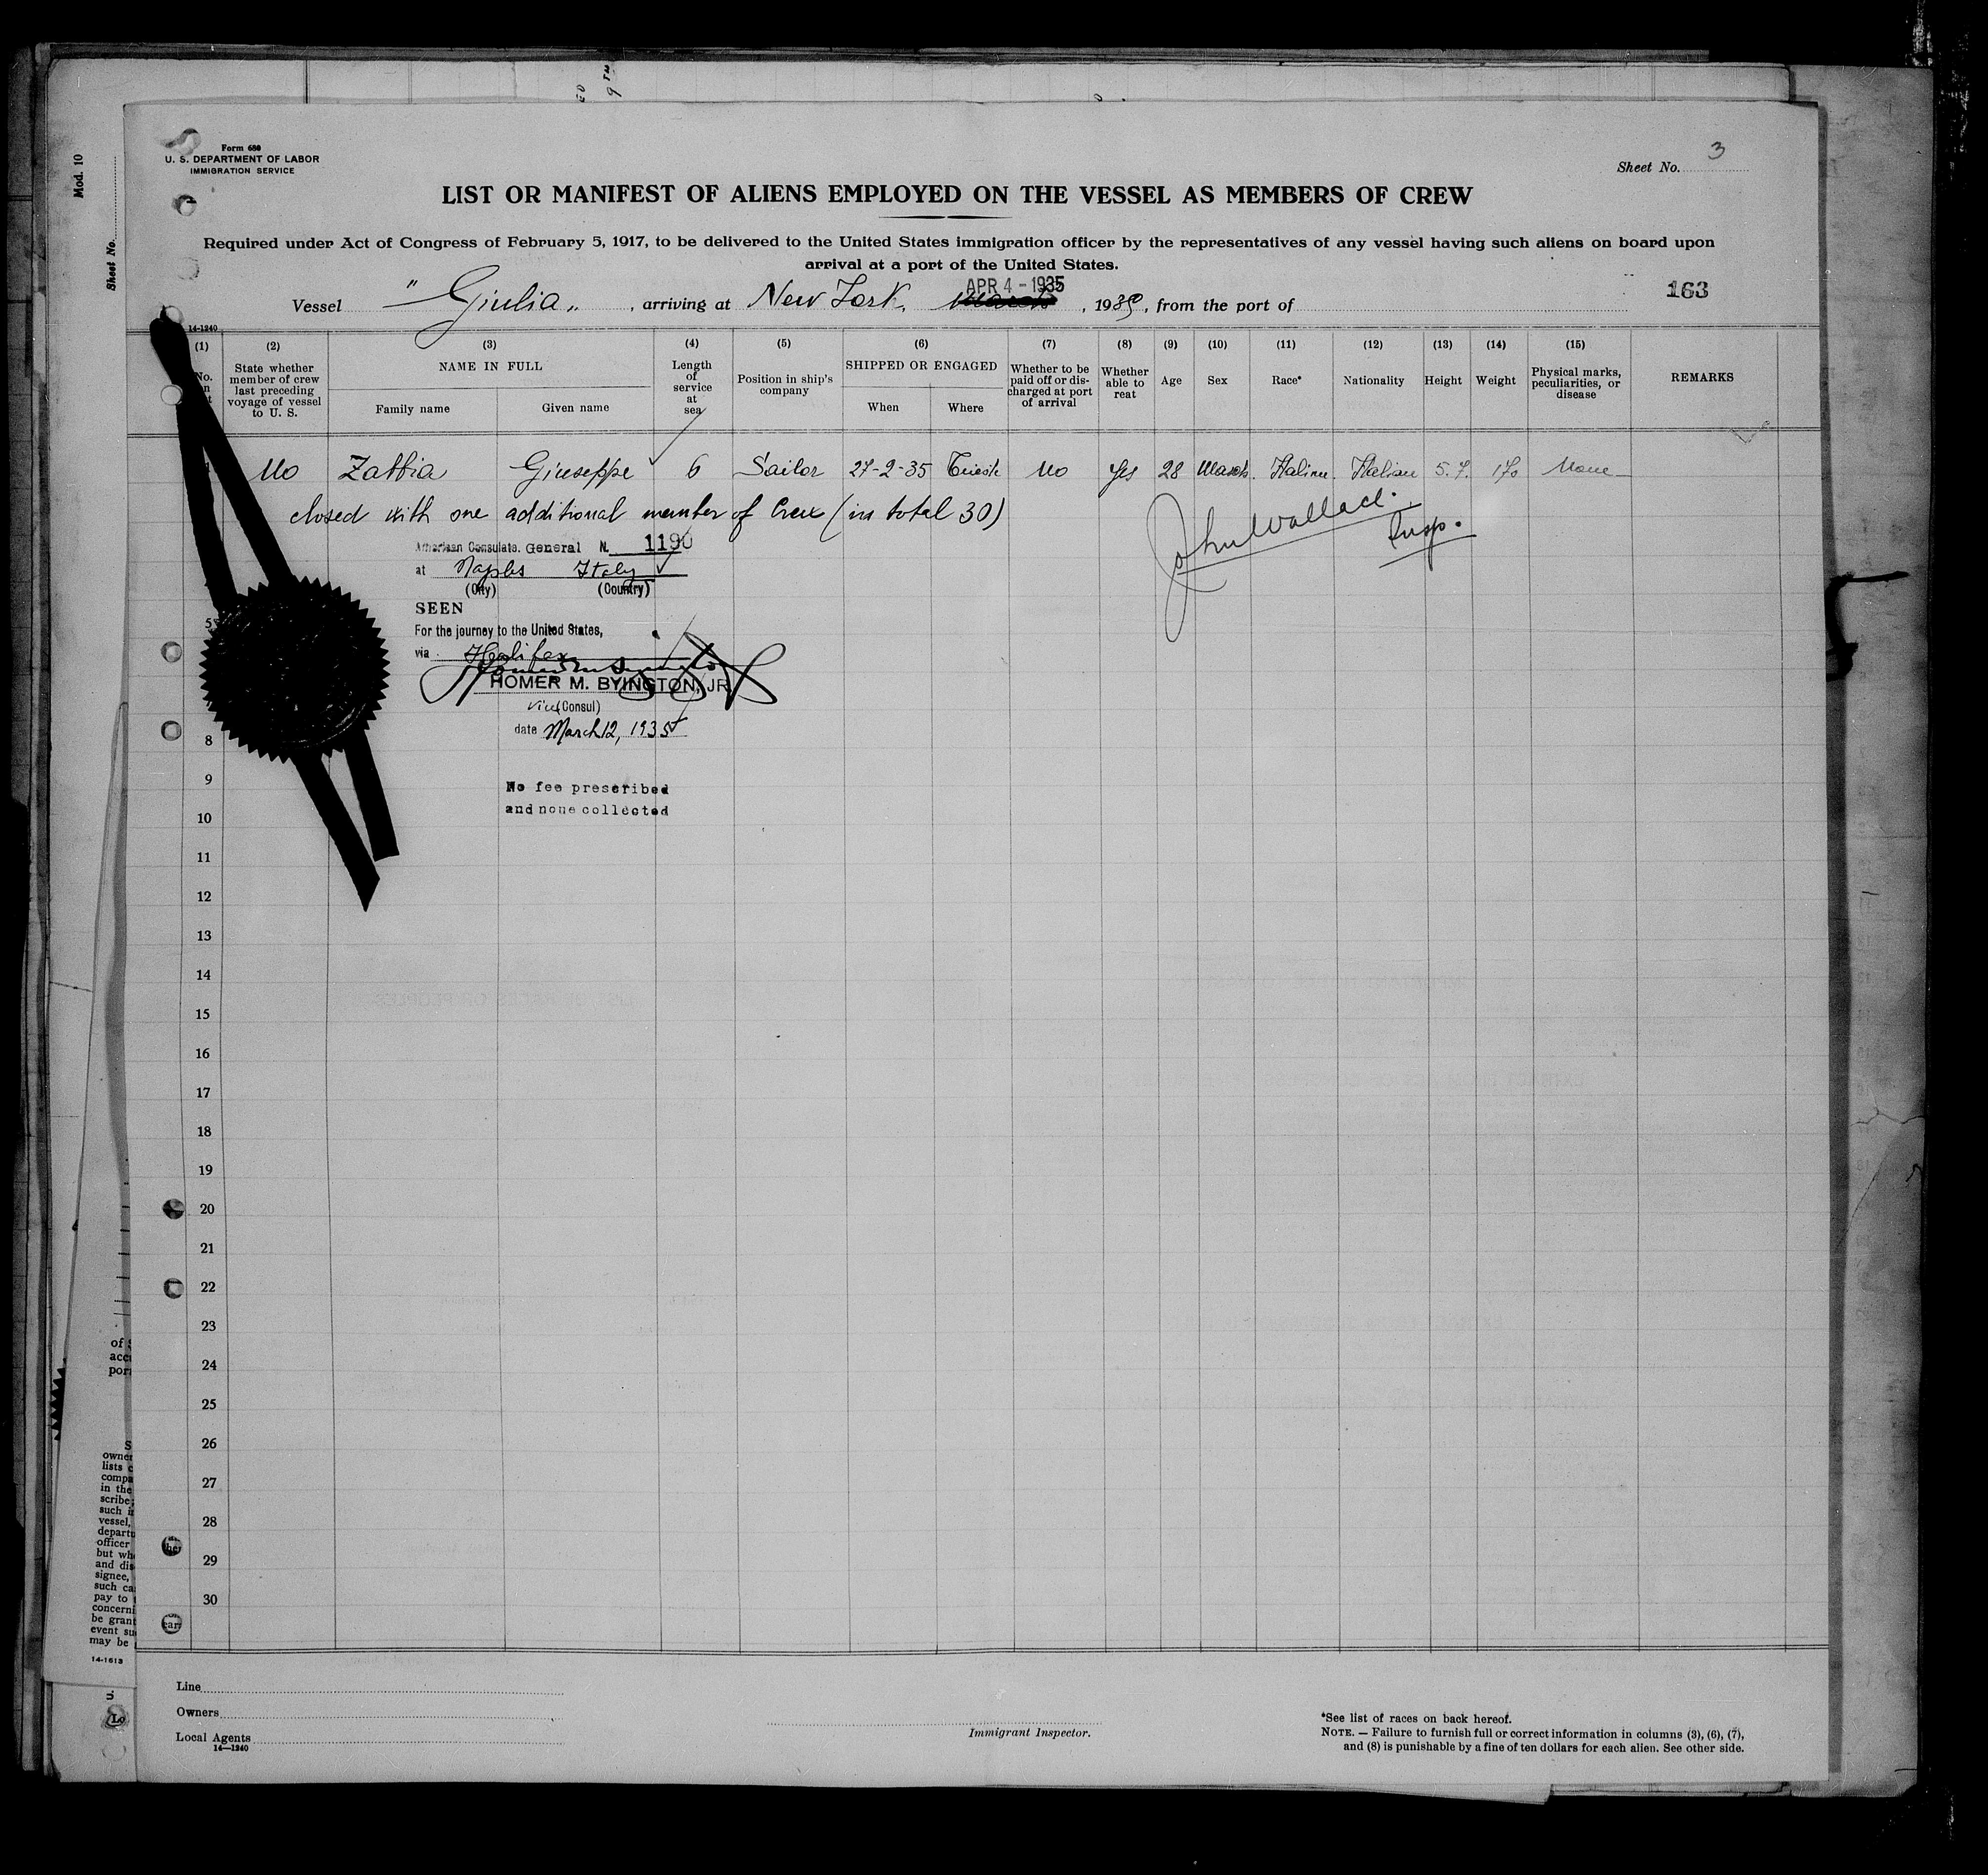 Mod. 10
Sheet No.
Form 680
U. S. DEPARTMENT OF LABOR
IMMIGRATION SERVICE
Sheet No. 3
LIST OR MANIFEST OF ALIENS EMPLOYED ON THE VESSEL AS MEMBERS OF CREW
Required under Act of Congress of February 5, 1917, to be delivered to the United States immigration officer by the representatives of any vessel having such aliens on board upon
arrival at a port of the United States.
APR 4 - 1935
Vessel "Giulia„ , arriving at New York, March , 1935, from the port of
163
14-1240
(1) (2) (3) (4) (5) (6) (7) (8) (9) (10) (11) (12) (13) (14) (15)
No.
State whether
member of crew
last preceding
voyage of vessel
to U. S.
NAME IN FULL
Family name Given name
Length
of
service
at
sea
Position in ship's
company
SHIPPED OR ENGAGED
When Where
Whether to be
paid off or dis-
charged at port
of arrival
Whether
able to
reat
Age
Sex
Race*
Nationality
Height
Weight
Physical marks,
peculiarities, or
disease
REMARKS
No Zabbia Giuseppe 6 Sailor 27-2-35 Trieste No Yes 28 Italian Italian 5.7. 170 None
closed with one additional member of Crew (in total 30)
John Wallace
Insp.
American Consulate General N. 1190
at Naples Italy
(City) (Country)
SEEN
For the journey to the United States,
via Halifax
HOMER M. BYINGTON, JR.
Vice (Consul)
date March 12, 1935
No fee prescribed
and none collected
5
8
9
10
11
12
13
14
15
16
17
18
19
20
21
22
23
24
25
26
27
28
29
30
Line
Owners
Local Agents
14—1240
Immigrant Inspector.
*See list of races on back hereof.
NOTE. — Failure to furnish full or correct information in columns (3), (6), (7),
and (8) is punishable by a fine of ten dollars for each alien. See other side.
14-1613